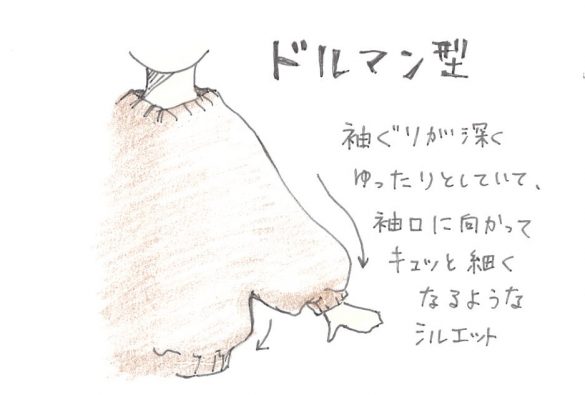 ドルマン型
袖ぐりが深く
ゆったりとしていて、
袖口に向かって
キュッと細く
なるような
シルエット